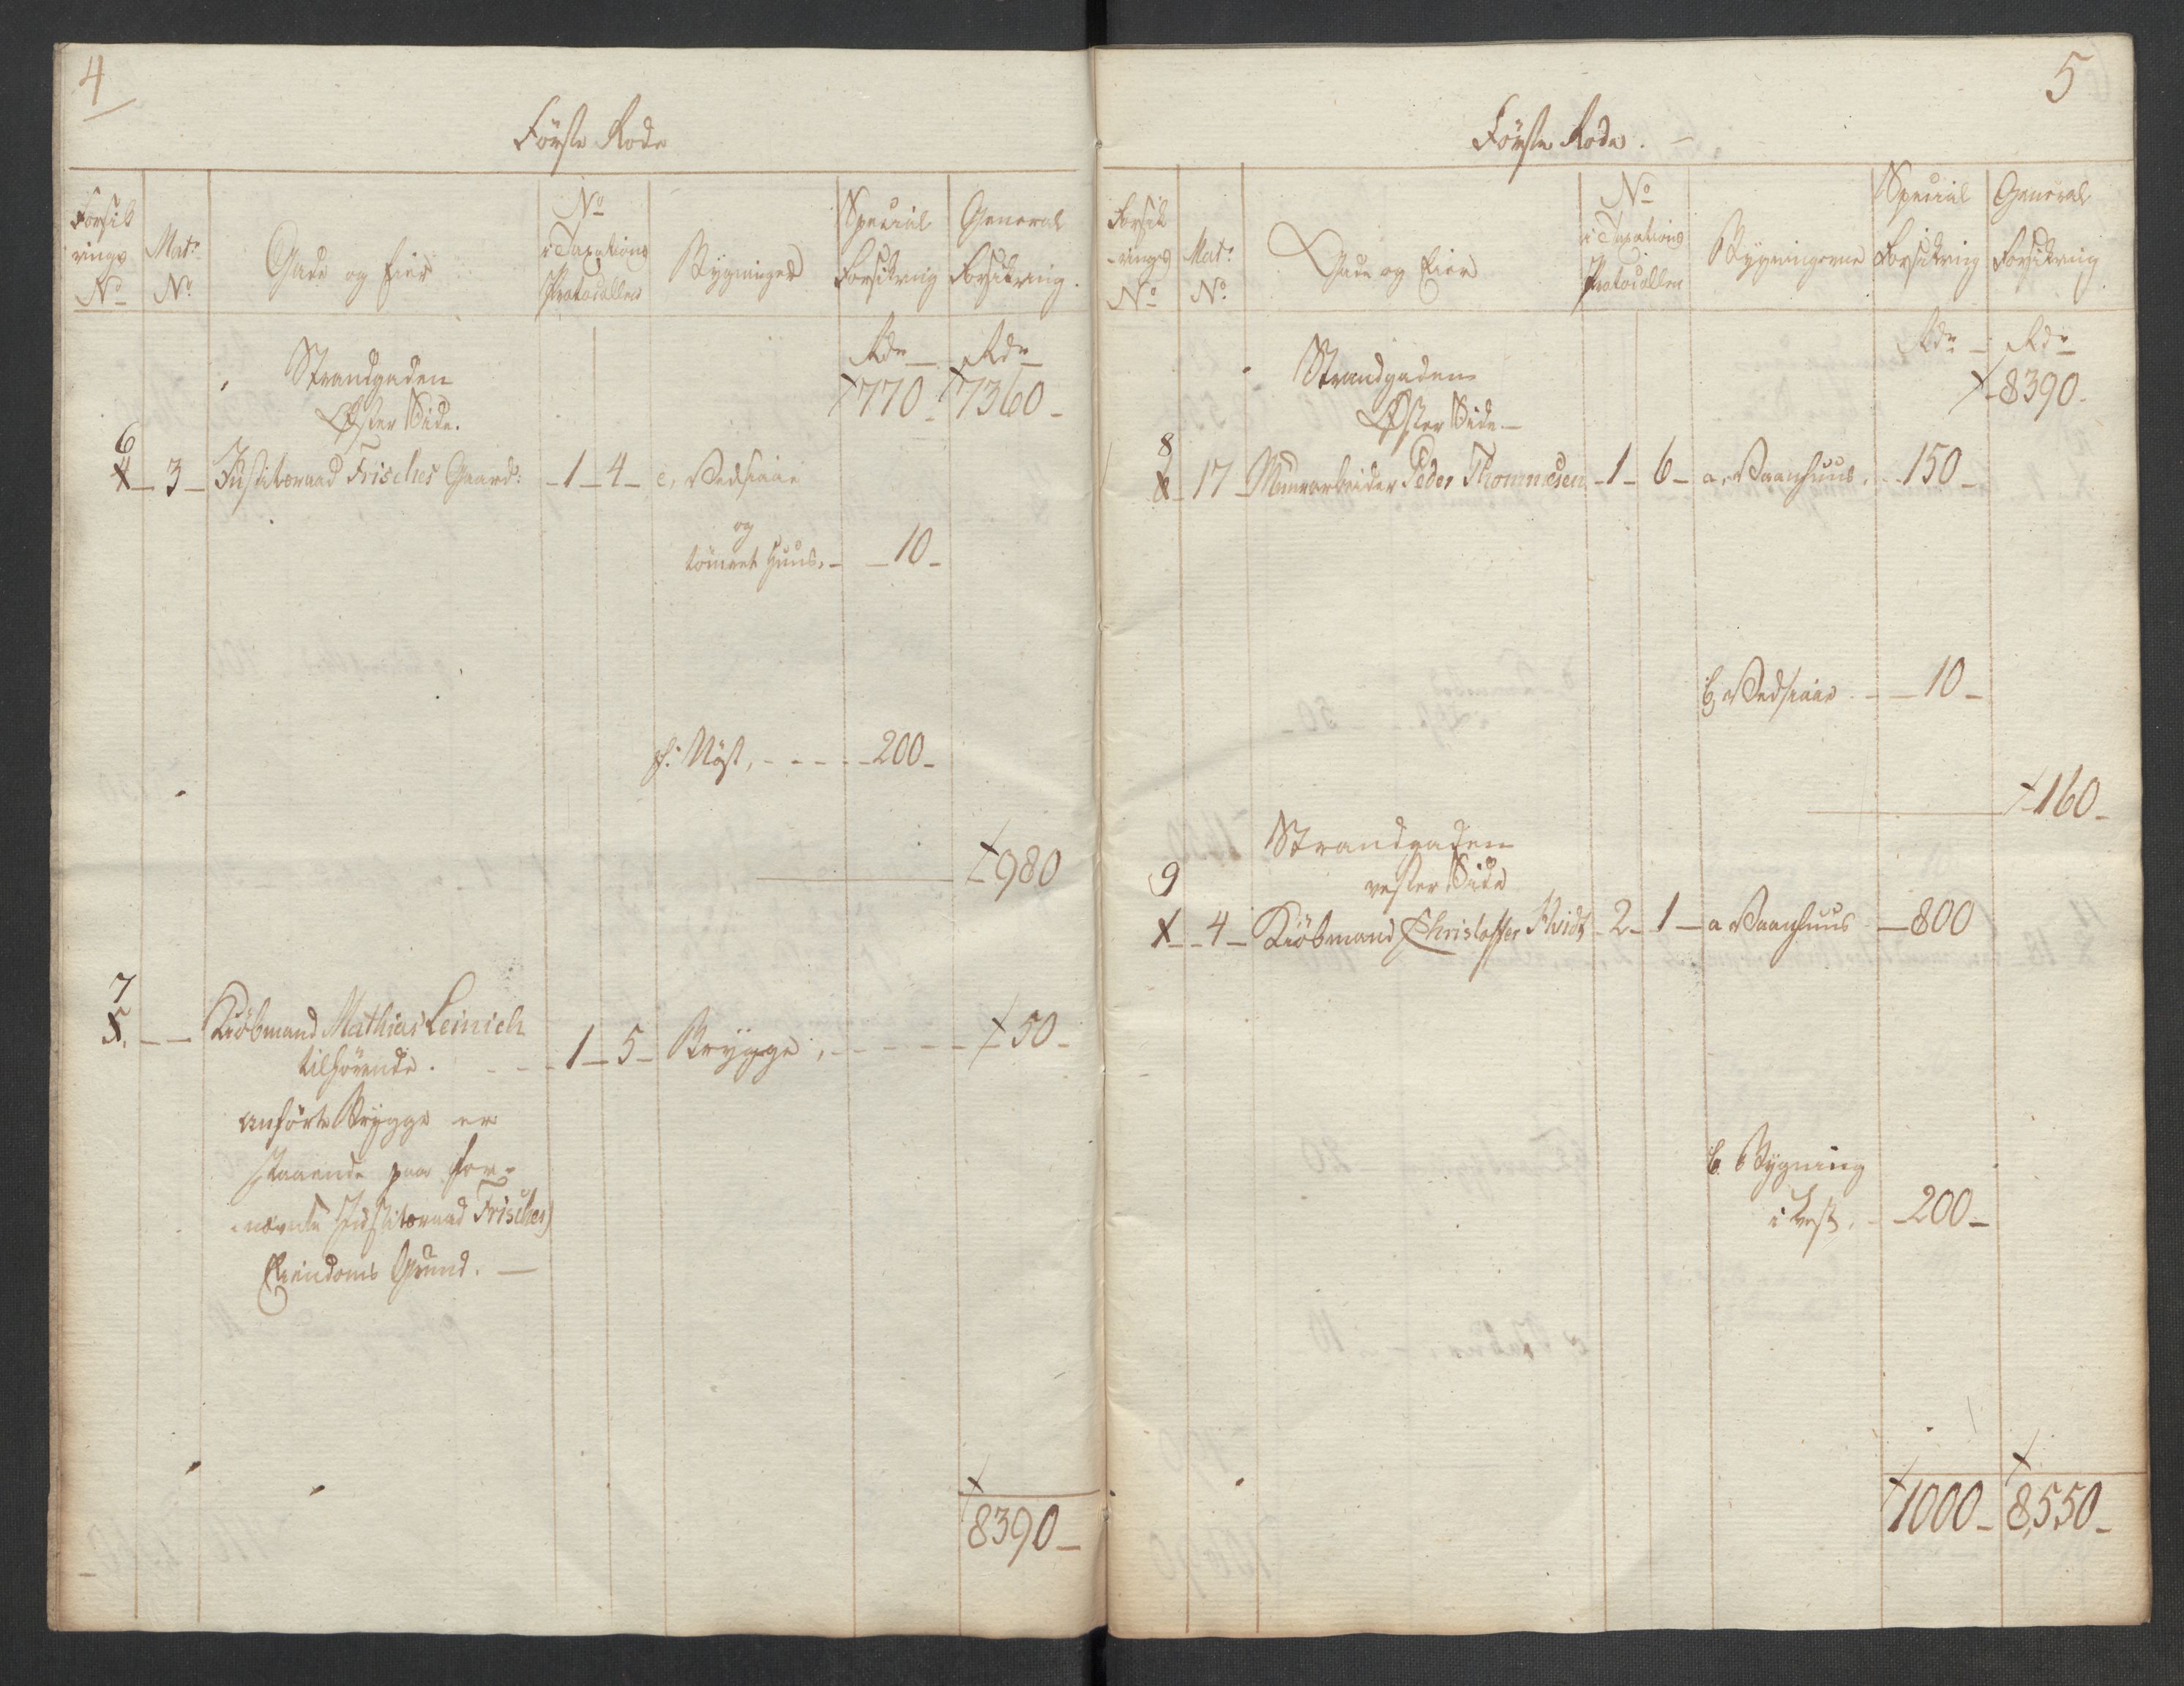 4
Første Rode
Forsik
rings
No
Matr.
No.
Gade og Eier
No
i Taxations
Protocollen
Bygninger
Special
Forsikring
General
Forsikring.
Strandgaden
Øster Side.
Rdr Rdr
770 7360
6
4 3 Justitsraad Frisches Gaard: 1 4 e, Vedskiaae
og
tömret Huus, 10
f. Nøst, 200
980
7
5. Kiöbmand Mathias Leinich
tilhörende. 1 5 Brygge, 50
anførte Brygge er
staaende paa for-
nævnte Justitsraad Frisches
Eiendoms Grund.
8390
5
Første Rode.
Forsik
rings
No
Matr.
No.
Gade og Eier
No
i Taxations
Protocollen
Bygningerne
Special
Forsikring
General
Forsikring
Strandgaden
Øster Side
Rdr Rdr
8390
8
6 17 Muurarbeider Peder Thommesen 1 6 a, Vaanhuus, 150
b, Vedskiaae 10
160
Strandgaden
vester Side
9
1 4 Kiöbmand Christoffer Hvidt 2 1 a Vaanhuus 800
b. Bygning
i Vest, 200
1000 8550